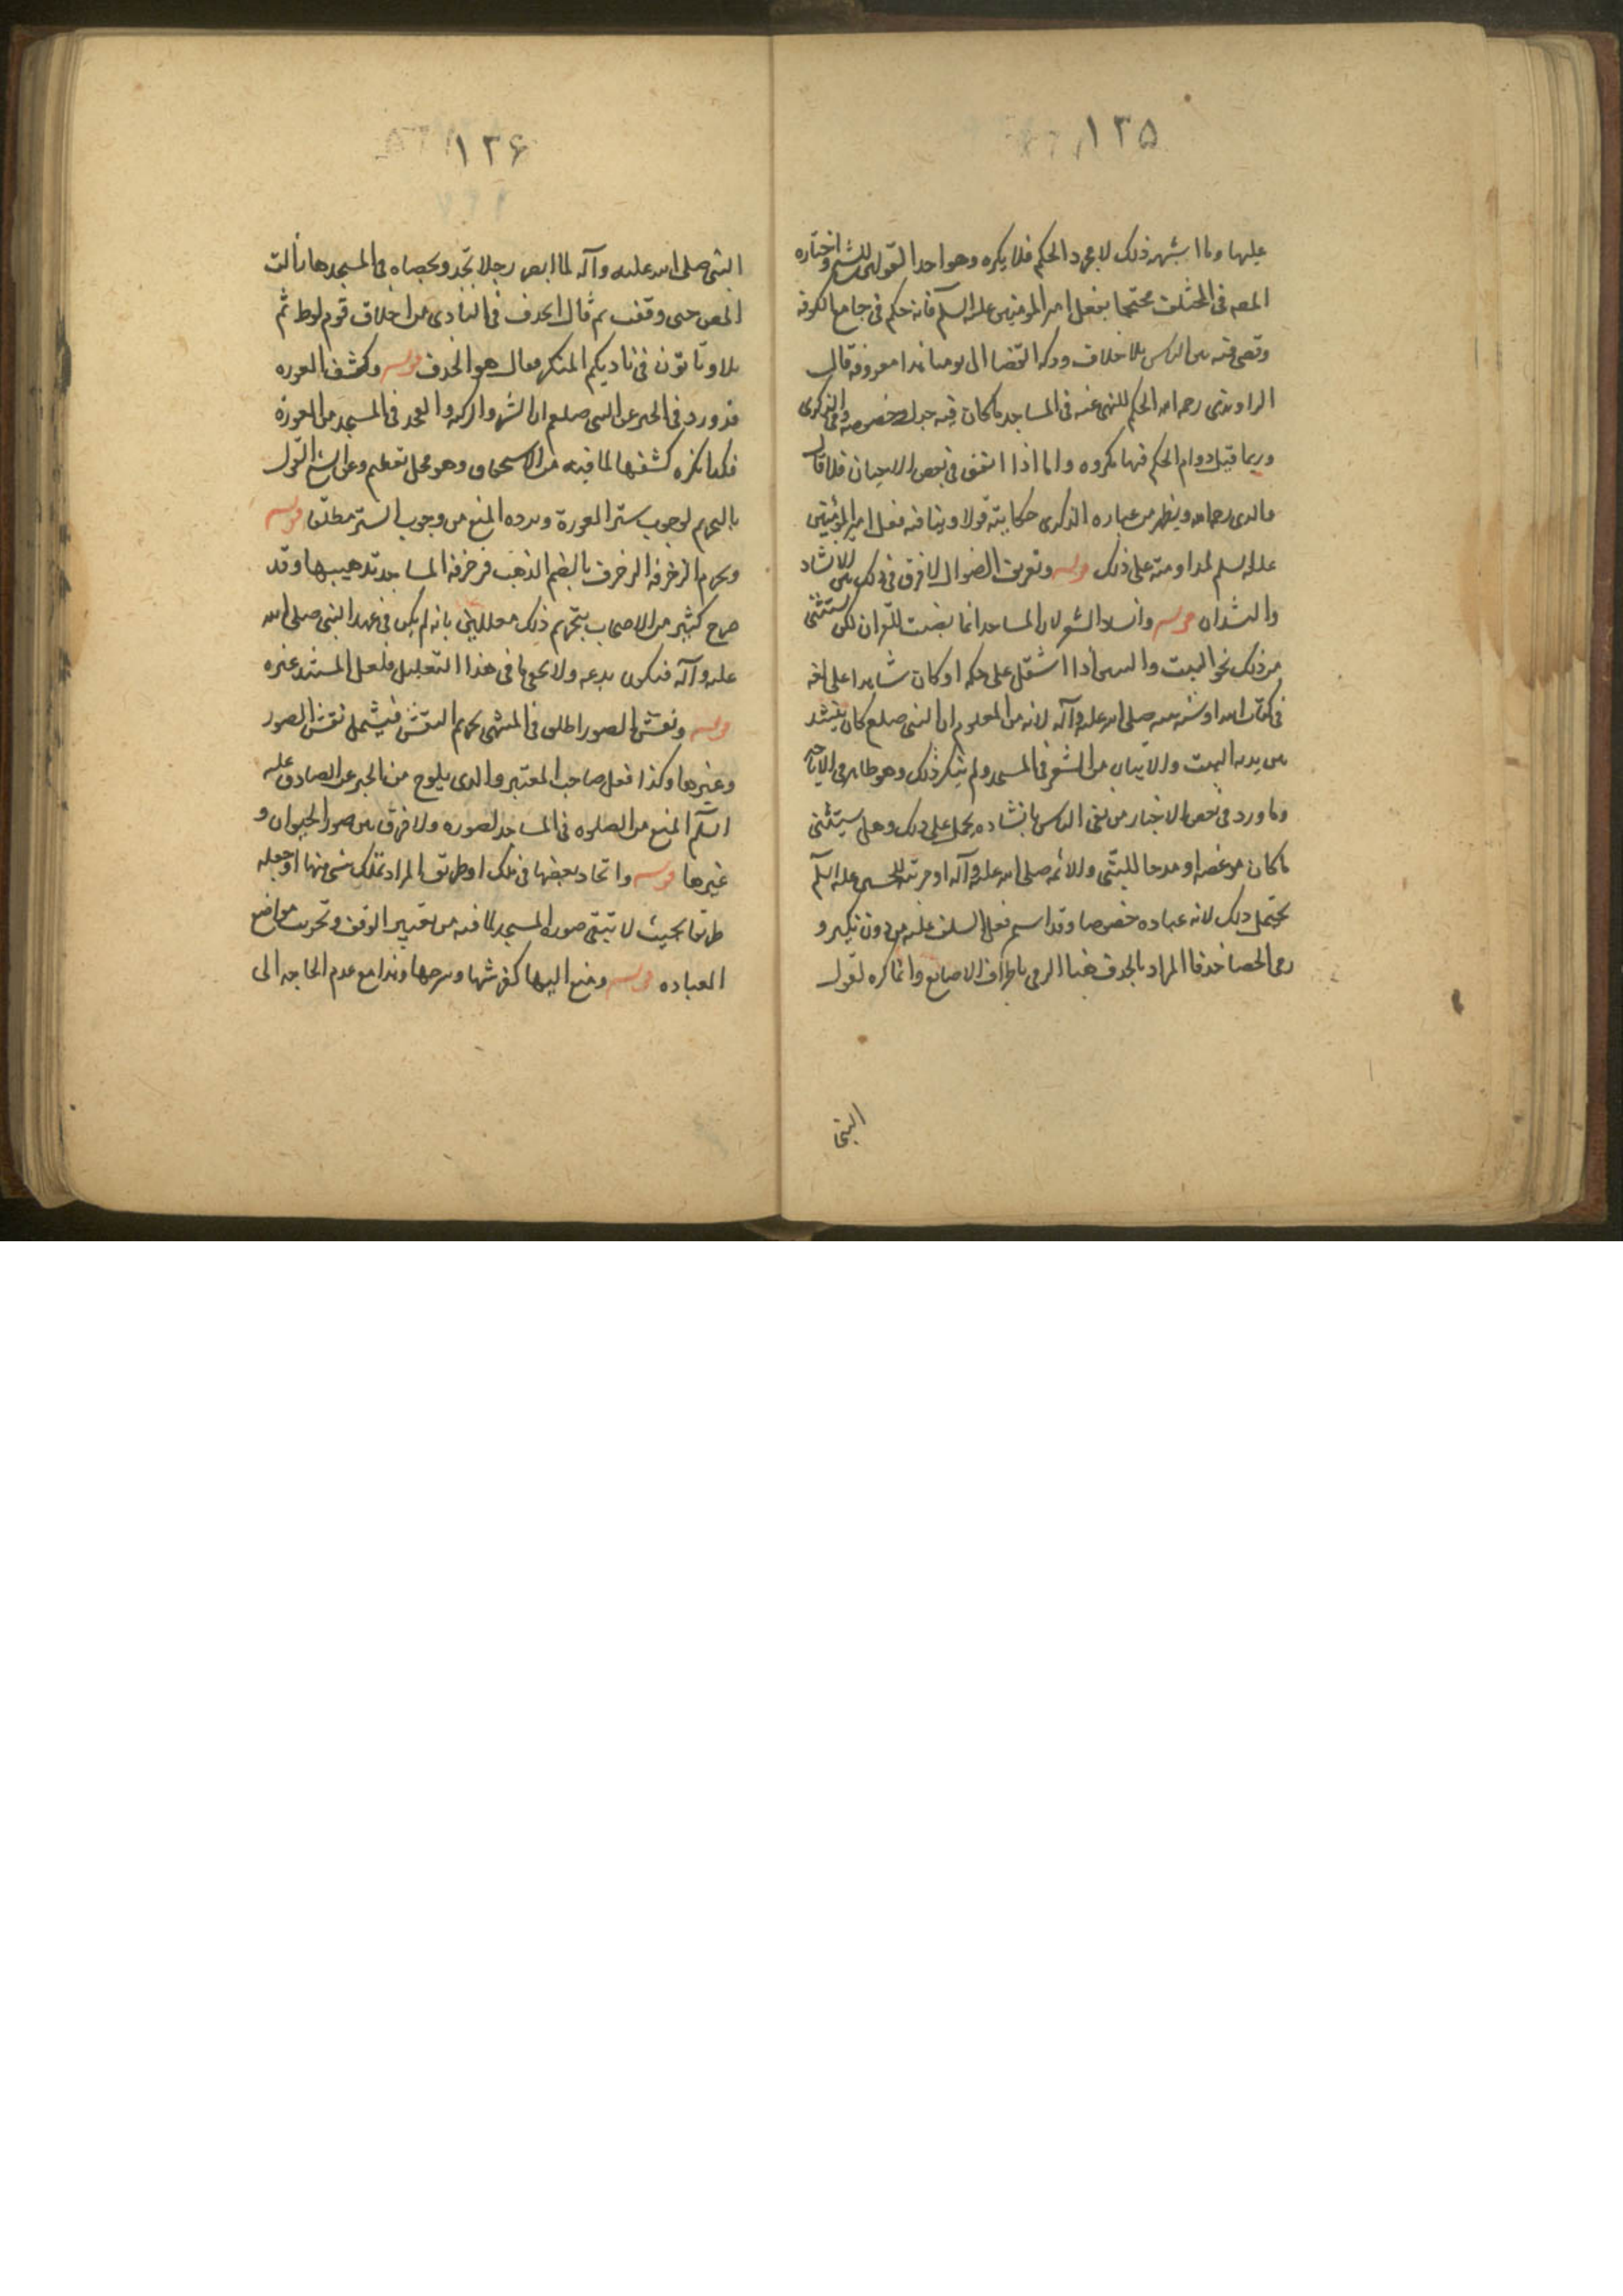 ١٢٥
عليها وما اشبهه ذلك لا مجرد الحكم فلا يكره وهو احد القولين للشيخ واختاره
المصـ في المختلف محتجا بفعل امير المومنين عليه السلم فانه حكم في جامع الكوفه
وقضى فيه بين الناس بلا خلاف ودكه القضا الى يومنا هذا معروفه قال
الراوندى رحمه الله الحكم المنهى عنه في المساجد ما كان فيه جدل وخصومه وفي الذكرى
وربما قيل دوام الحكم فيها مكروه واما اذا اتفق في بعض الاحيان فلا قال
والدى رحمه الله ويظهر من عباره الذكرى حكايته قولا وينافيه فعل امير المؤمنين
عليه السلم لمداومته على ذلك قوله وتعريف الضوال لا فرق في ذلك بين الانشاد
والنشدان قوله وانشاد الشعر لان المساجد انما نصبت للقران لكن يستثنى
من ذلك نحو البيت والبيتين اذا اشتمل على حكمه او كان شاهدا على لغه
في كتاب الله او سنه نبيه صلى الله عليه وآله لانه من المعلوم ان النبى صلعم كان ينشد
بين يديه البيت والابيات من الشعر في المسجد ولم ينكر ذلك وهو ظاهر في الاباحه
وما ورد في بعض الاخبار من نهى الناس بانشاده يحمل على ذلك وهل يستثنى
ما كان موعضه او مدحا للنبى والائمه صلى الله عليه وآله او مرثيه للحسين عليه السلم
يحتمل ذلك لانه عباده خصوصا وقد استمر فعل السلف عليه من دون نكير و
رمى الحصا خذفا المراد بالخذف هنا الرمى باطراف الاصابع وانما كره لقول
النبى
١٢۶
النبى صلى الله عليه وآله لما ابصر رجلا يخذف بحصاه في المسجد ما زالت
تلعن حتى وقعت ثم قال الخذف في النادى من اخلاق قوم لوط ثم
تلا وتأتون في ناديكم المنكر فقال هو الخذف قوله وكشف العوره
فورد في الخبر عن النبى صلعم ان السره والركبه والفخذ في المسجد من العورة
فلذا يكره كشفها لما فيه من الاستخفاف وهو محل تعظيم وعن الشيخ القول
بالتحريم لوجوب ستر العورة ويرده المنع من وجوب الستر مطلقا قوله
ويحرم الزخرفه الزخرف بالضم الذهب فزخرفه المساجد تذهيبها وقد
صرح كثير من الاصحاب بتحريم ذلك معللين بانه لم يكن في عهد النبى صلى الله
عليه وآله فيكون بدعه ولا يخفى ما في هذا التعليل فلعل المستند غيره
قوله ونقشها بالصور اطلق في المنتهى تحريم النقش فيشمل نقش الصور
وغيرها وكذا فعل صاحب المعتبر والذى يلوح من الخبر عن الصادق عليه
السلم المنع من الصلوه في المساجد المصوره ولا فرق بين صور الحيوان و
غيرها قوله واتخاذ بعضها في ملك او طريق المراد تملك شى منها او جعله
طريقا بحيث لا تبقى صوره المسجد لما فيه من تغيير الوقف وتخريب مواضع
العباده قوله ومنع اليها كفرشها وسرجها وهذا مع عدم الحاجه الى